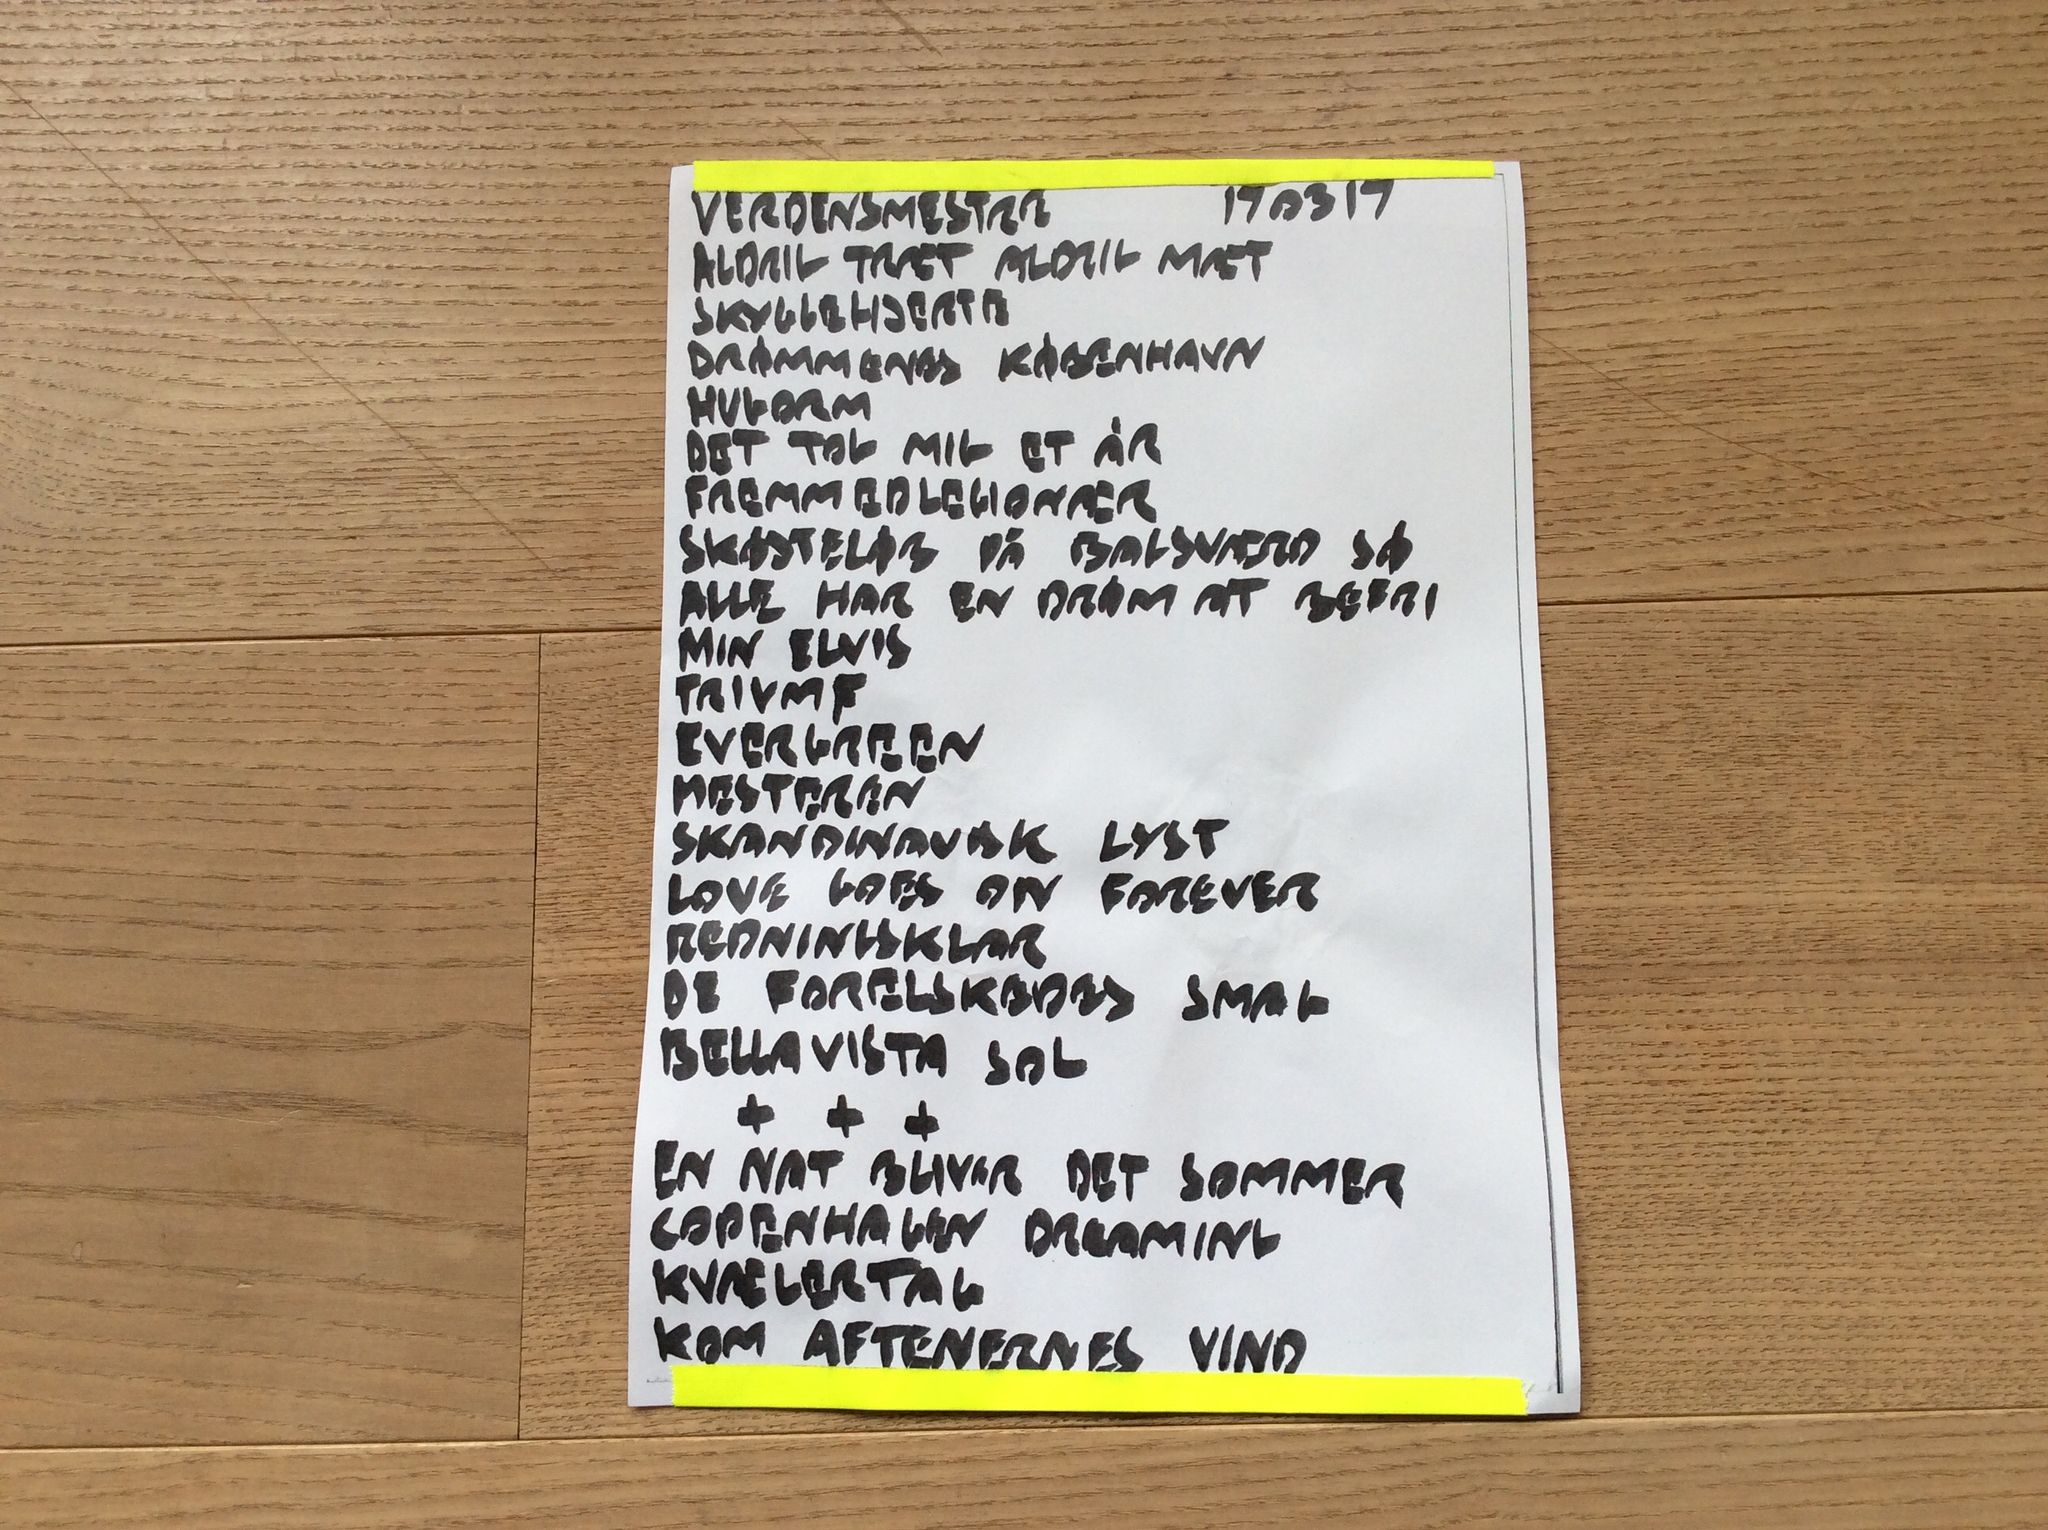 VERDENSMESTER 170317
ALDRIG TRÆT ALDRIG MÆT
SKYGGEHJERTE
DRØMMENES KØBENHAVN
HUGORM
DET TOG MIG ET ÅR
FREMMEDLEGIONÆR
SKØJTELØB PÅ BAGSVÆRD SØ
ALLE HAR EN DRØM AT BEFRI
MIN ELVIS
TRIUMF
EVERGREEN
MESTEREN
SKANDINAVISK LYST
LOVE GOES ON FOREVER
REDNINGSKLAR
DE FORELSKEDES SMAG
BELLAVISTA SOL
+ + +
EN NAT BLIVER DET SOMMER
COPENHAGEN DREAMING
KVÆLERTAG
KOM AFTENERNES VIND